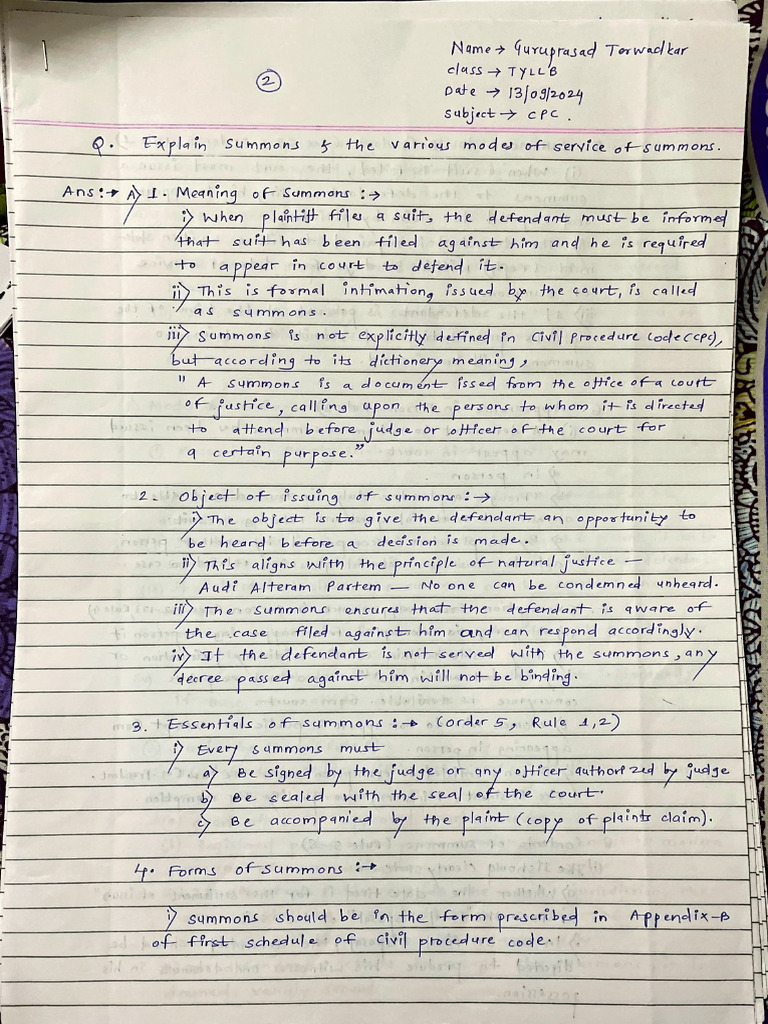 Name → Guruprasad Torwadkar
class → TYLLB
Date → 13/09/2024
Subject → CPC.
2
Q. Explain summons & the various modes of service of summons.
Ans:→ A> 1. Meaning of summons:→
i> When plaintiff files a suit, the defendant must be informed
that suit has been filed against him and he is required
to appear in court to defend it.
ii> This is formal intimation, issued by the court, is called
as summons.
iii> Summons is not explicitly defined in Civil Procedure Code(CPC),
but according to its dictionery meaning,
" A summons is a document issed from the office of a court
of justice, calling upon the persons to whom it is directed
to attend before judge or officer of the court for
a certain purpose."
2. Object of issuing of summons:→
i> The object is to give the defendant an opportunity to
be heard before a decision is made.
ii> This aligns with the principle of natural justice —
Audi Alteram Partem — No one can be condemned unheard.
iii> The summons ensures that the defendant is aware of
the case filed against him and can respond accordingly.
iv> If the defendant is not served with the summons, any
decree passed against him will not be binding.
3. Essentials of summons:→ (Order 5, Rule 1,2)
i> Every summons must
a> Be signed by the judge or any officer authorized by judge
b> Be sealed with the seal of the court.
c> Be accompanied by the plaint (copy of plaints claim).
4. Forms of summons:→
i> summons should be in the form prescribed in Appendix-B
of first schedule of civil procedure code.